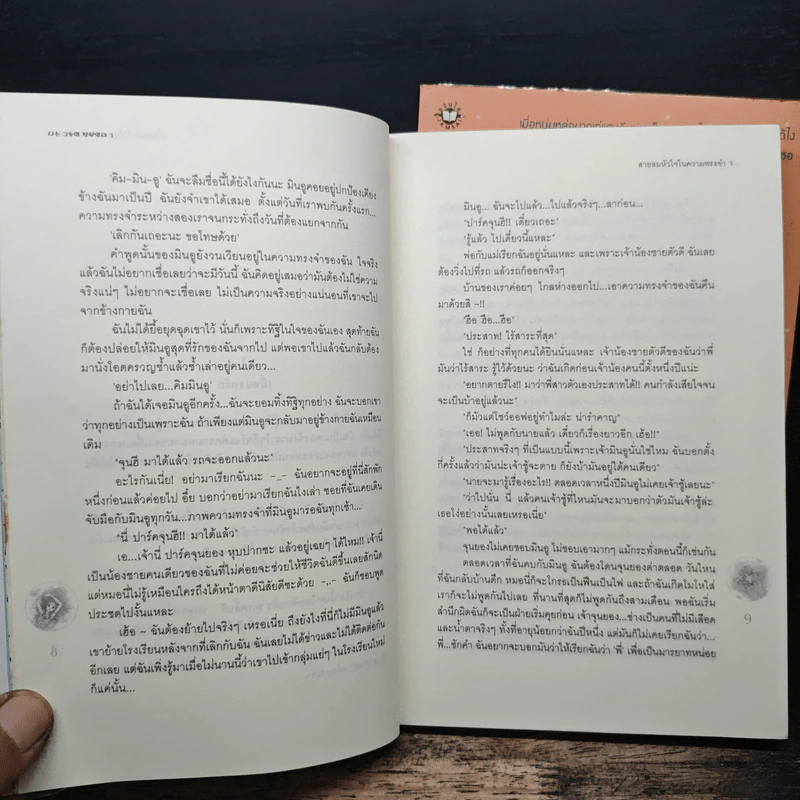 'คิม-มิน-อู' ฉันจะลืมชื่อนี้ได้ยังไงกันนะ มินอูคอยอยู่ปกป้องเคียง
ข้างฉันมาเป็นปี ฉันยังจำเขาได้เสมอ ตั้งแต่วันที่เราพบกันครั้งแรก...
ความทรงจำระหว่างสองเราจนกระทั่งถึงวันที่ต้องแยกจากกัน
'เลิกกันเถอะนะ ขอโทษด้วย'
คำพูดนั้นของมินอูยังวนเวียนอยู่ในความทรงจำของฉัน ใจจริง
แล้วฉันไม่อยากเชื่อเลยว่าจะมีวันนี้ ฉันคิดอยู่เสมอว่ามันต้องไม่ใช่ความ
จริงแน่ๆ ไม่อยากจะเชื่อเลย ไม่เป็นความจริงอย่างแน่นอนที่เขาจะไป
จากข้างกายฉัน
ฉันไม่ได้ยื้อยุดฉุดเขาไว้ นั่นก็เพราะทิฐิในใจของฉันเอง สุดท้ายฉัน
ก็ต้องปล่อยให้มินอูสุดที่รักของฉันจากไป แต่พอเขาไปแล้วฉันกลับต้อง
มานั่งโอดครวญซ้ำแล้วซ้ำเล่าอยู่คนเดียว...
'อย่าไปเลย...คิมมินอู'
ถ้าฉันได้เจอมินอูอีกครั้ง...ฉันจะยอมทิ้งทิฐิทุกอย่าง ฉันจะบอกเขา
ว่าทุกอย่างเป็นเพราะฉัน ถ้าเพียงแต่มินอูจะกลับมาอยู่ข้างกายฉันเหมือน
เดิม
"จุนฮี มาได้แล้ว รถจะออกแล้วนะ"
อะไรกันเนี่ย! อย่ามาเรียกฉันนะ -_- ฉันอยากจะอยู่ที่นี่สักพัก
หนึ่งก่อนแล้วค่อยไป อึ๋ย บอกว่าอย่ามาเรียกฉันไงเล่า ซอยที่ฉันเคยเดิน
จับมือกับมินอูทุกวัน...ภาพความทรงจำที่มินอูมารอฉันทุกเช้า...
"นี่ ปาร์คจุนฮี!! มาได้แล้ว"
เอ...เจ้านี่ ปาร์คจุนยอง หุบปากซะ แล้วอยู่เฉยๆ ได้ไหม!! เจ้านี่
เป็นน้องชายคนเดียวของฉันที่ไม่ค่อยจะช่วยให้ชีวิตฉันดีขึ้นเลยสักนิด
แต่หมอนี่ไม่รู้เหมือนใครถึงได้หน้าตาดีนิสัยดีซะด้วย -,.- ฉันก็ชอบพูด
ประชดไปงั้นแหละ
เฮ้อ ~ ฉันต้องย้ายไปจริงๆ เหรอเนี่ย ถึงยังไงที่นี่ก็ไม่มีมินอูแล้ว
เขาย้ายโรงเรียนหลังจากที่เลิกกับฉัน ฉันเลยไม่ได้ข่าวและไม่ได้ติดต่อกัน
อีกเลย แต่ฉันเพิ่งรู้มาเมื่อไม่นานนี้ว่าเขาไปเข้ากลุ่มแย่ๆ ในโรงเรียนใหม่
ก็แค่นั้น...
8
สายลมหัวใจในความทรงจำ 1
มินอู... ฉันจะไปแล้ว...ไปแล้วจริงๆ...ลาก่อน...
"ปาร์คจุนฮี!! เดี๋ยวเถอะ"
"รู้แล้ว ไปเดี๋ยวนี้แหละ"
พ่อกับแม่เรียกฉันอยู่นั่นแหละ และเพราะเจ้าน้องชายตัวดี ฉันเลย
ต้องวิ่งไปที่รถ แล้วรถก็ออกจริงๆ
บ้านของเราค่อยๆ ไกลห่างออกไป...เอาความทรงจำของฉันคืน
มาด้วยสิ -!!
"ฮือ ฮือ...ฮือ"
"ประสาท! ไร้สาระที่สุด"
ใช่ ก็อย่างที่ทุกคนได้ยินนั่นแหละ เจ้าน้องชายตัวดีของฉันว่าพี่
มันว่าไร้สาระ รู้ไว้ด้วยนะว่า ฉันเกิดก่อนเจ้าน้องคนนี้ตั้งหนึ่งปีแน่ะ
"อยากตายรึไง!! มาว่าพี่สาวตัวเองประสาทได้!! คนกำลังเสียใจจน
จะเป็นบ้าอยู่แล้วนะ"
"ก็มัวแต่โชว์ออฟอยู่ทำไมล่ะ น่ารำคาญ"
"เออ! ไม่พูดกับนายแล้ว เดี๋ยวก็เรื่องยาวอีก เฮ้อ!!"
"ประสาทจริงๆ ที่เป็นแบบนี้เพราะเจ้ามินอูนั่นใช่ไหม ฉันบอกตั้ง
กี่ครั้งแล้วว่ามันน่ะเจ้าชู้จะตาย ก็ยังบ้ามันอยู่ได้คนเดียว"
"นายจะมารู้เรื่องอะไร!! ตลอดเวลาหนึ่งปีมินอูไม่เคยเจ้าชู้เลยนะ"
"ว่าไปนั่น นี่ แล้วคนเจ้าชู้ที่ไหนมันจะมาบอกว่าตัวมันเจ้าชู้ล่ะ
เธอโง่อย่างนั้นเลยเหรอเนี่ย"
"พอได้แล้ว"
จุนยองไม่เคยชอบมินอู ไม่ชอบเอามากๆ แม้กระทั่งตอนนี้ก็เช่นกัน
ตลอดเวลาที่ฉันคบกับมินอู ฉันต้องโดนจุนยองด่าตลอด วันไหน
ที่ฉันกลับบ้านดึก หมอนี่ก็จะโกรธเป็นฟืนเป็นไฟ และถ้าฉันเกิดโมโหใส่
เราก็จะไม่พูดกันไปเลย ที่นานที่สุดก็ไม่พูดกันถึงสามเดือน พอฉันเริ่ม
สำนึกผิดฉันจะเป็นฝ่ายเริ่มคุยก่อน เจ้าจุนยอง...ช่างเป็นคนที่ไม่มีเลือด
และน้ำตาจริงๆ ทั้งที่อายุน้อยกว่าฉันปีหนึ่ง แต่มันก็ไม่เคยเรียกฉันว่า...
พี่...ซักคำ ฉันอยากจะบอกมันว่าให้เรียกฉันว่า 'พี่' เพื่อเป็นมารยาทหน่อย
9